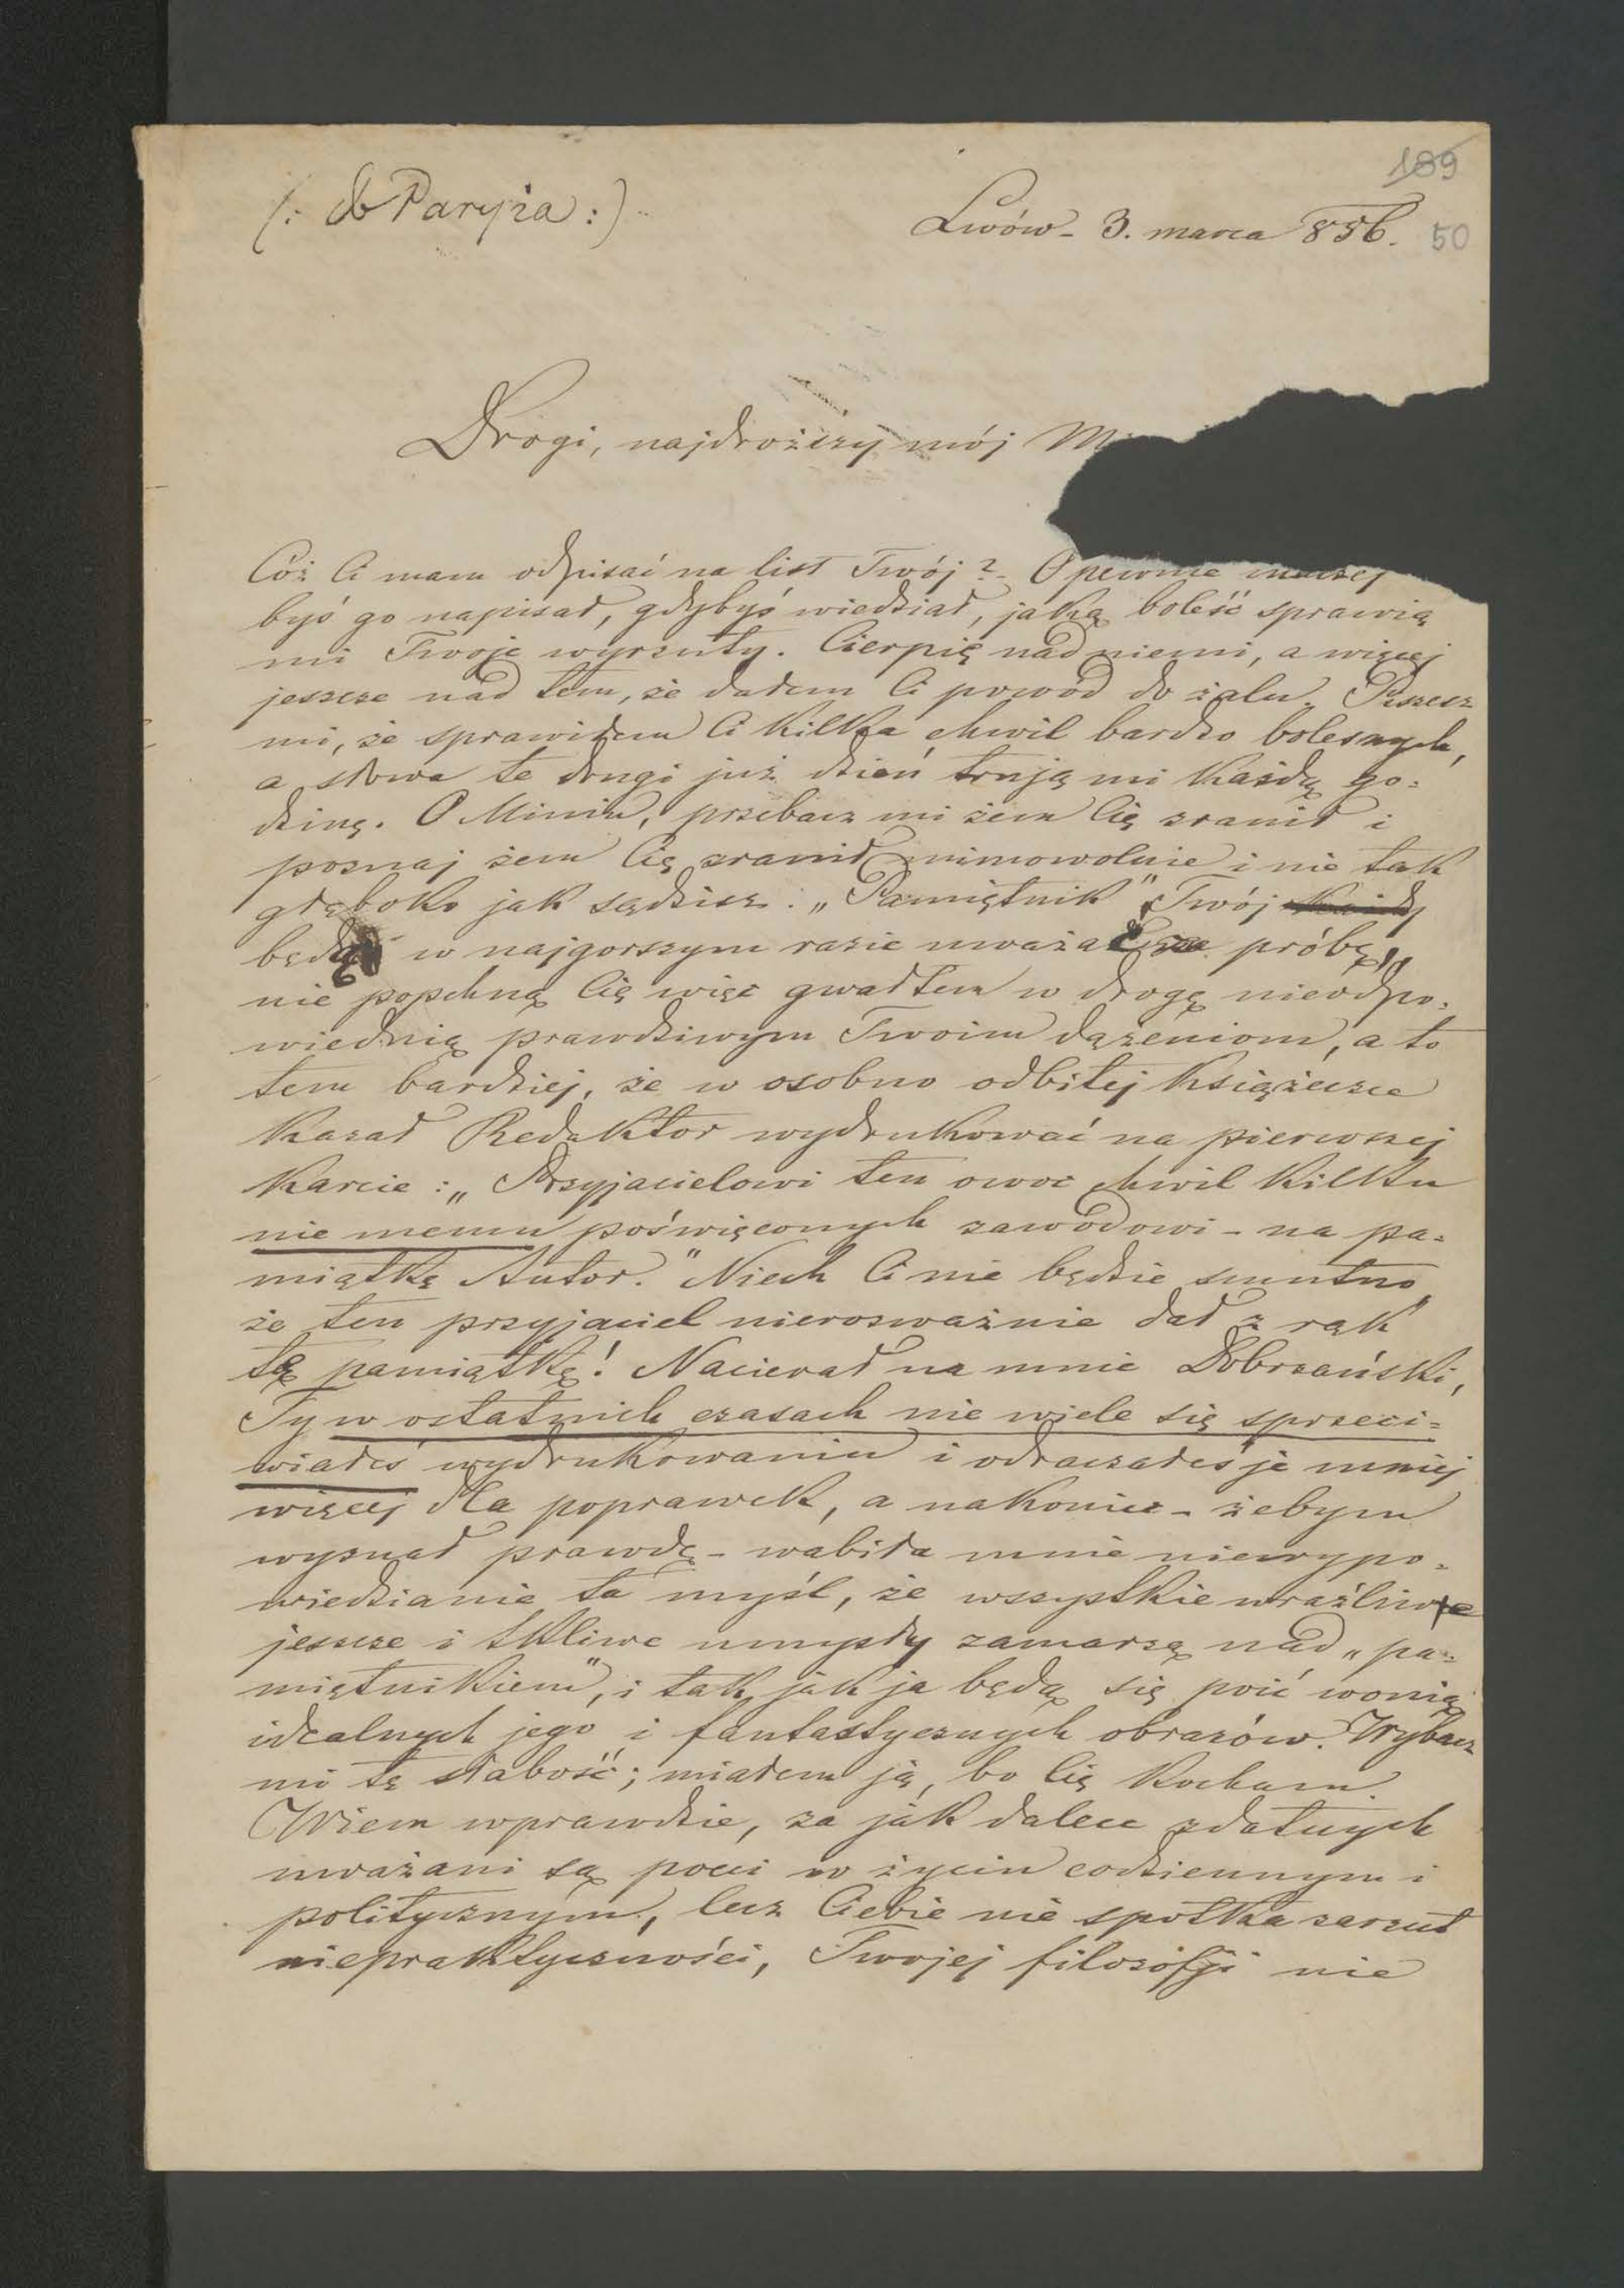 189
(: do Paryża :)
Lwów - 3. marca 856.
50
Drogi, najdroższy mój
Cóż Ci mam odpisać na list Twój? - O pewnie inaczej
byś go napisał, gdybyś wiedział, jaką boleść sprawią
mi Twoje wyrzuty. Cierpię nad niemi, a więcej
jeszcze nad tem, że dałem Ci powód do żalu. Piszesz
mi, że sprawiłem Ci kilka chwil bardzo bolesnych,
a słowa te drugi już dzień trują mi każdą go=
dzinę. O Miniu, przebacz mi żem Cię zranił i
poznaj żem Cię zranił mimowolnie i nie tak
głęboko jak sądzisz: „Pamiętnik" Twój
będą w najgorszym razie uważać za próbę,
nie popchną Cię więc gwałtem w drogę nieodpo=
wiednią prawdziwym Twoim dążeniom, a to
tem bardziej, że w osobno odbitej książeczce
kazał Redaktor wydrukować na pierwszej
karcie: „Przyjacielowi ten owoc chwil kilku
nie memu poświęconych zawodowi - na pa=
miątkę Autor." Niech Ci nie będzie smutno
że ten przyjaciel nierozważnie dał z rąk
tę pamiątkę! Nacierał na mnie Dobrzański,
Ty w ostatnich czasach nie wiele się sprzeci=
wiałeś wydrukowaniu i odraczałeś je mniej
więcej dla poprawek, a nakoniec - żebym
wyznał prawdę - wabiła mnie niewypo=
wiedzianie ta myśl, że wszystkie wraźliwe
jeszcze i tkliwe umysły zamarzą nad „pa=
miętnikiem", i tak jak ja będą się poić wonią
idealnych jego i fantastycznych obrazów. Wybacz
mi tę słabość; miałem ją, bo Cię kocham.
Wiem wprawdzie, za jak dalece zdatnych
uważani są poeci w życiu codziennym i
politycznym, lecz Ciebie nie spotka zarzut
niepraktyczności, Twojej filozofji nie